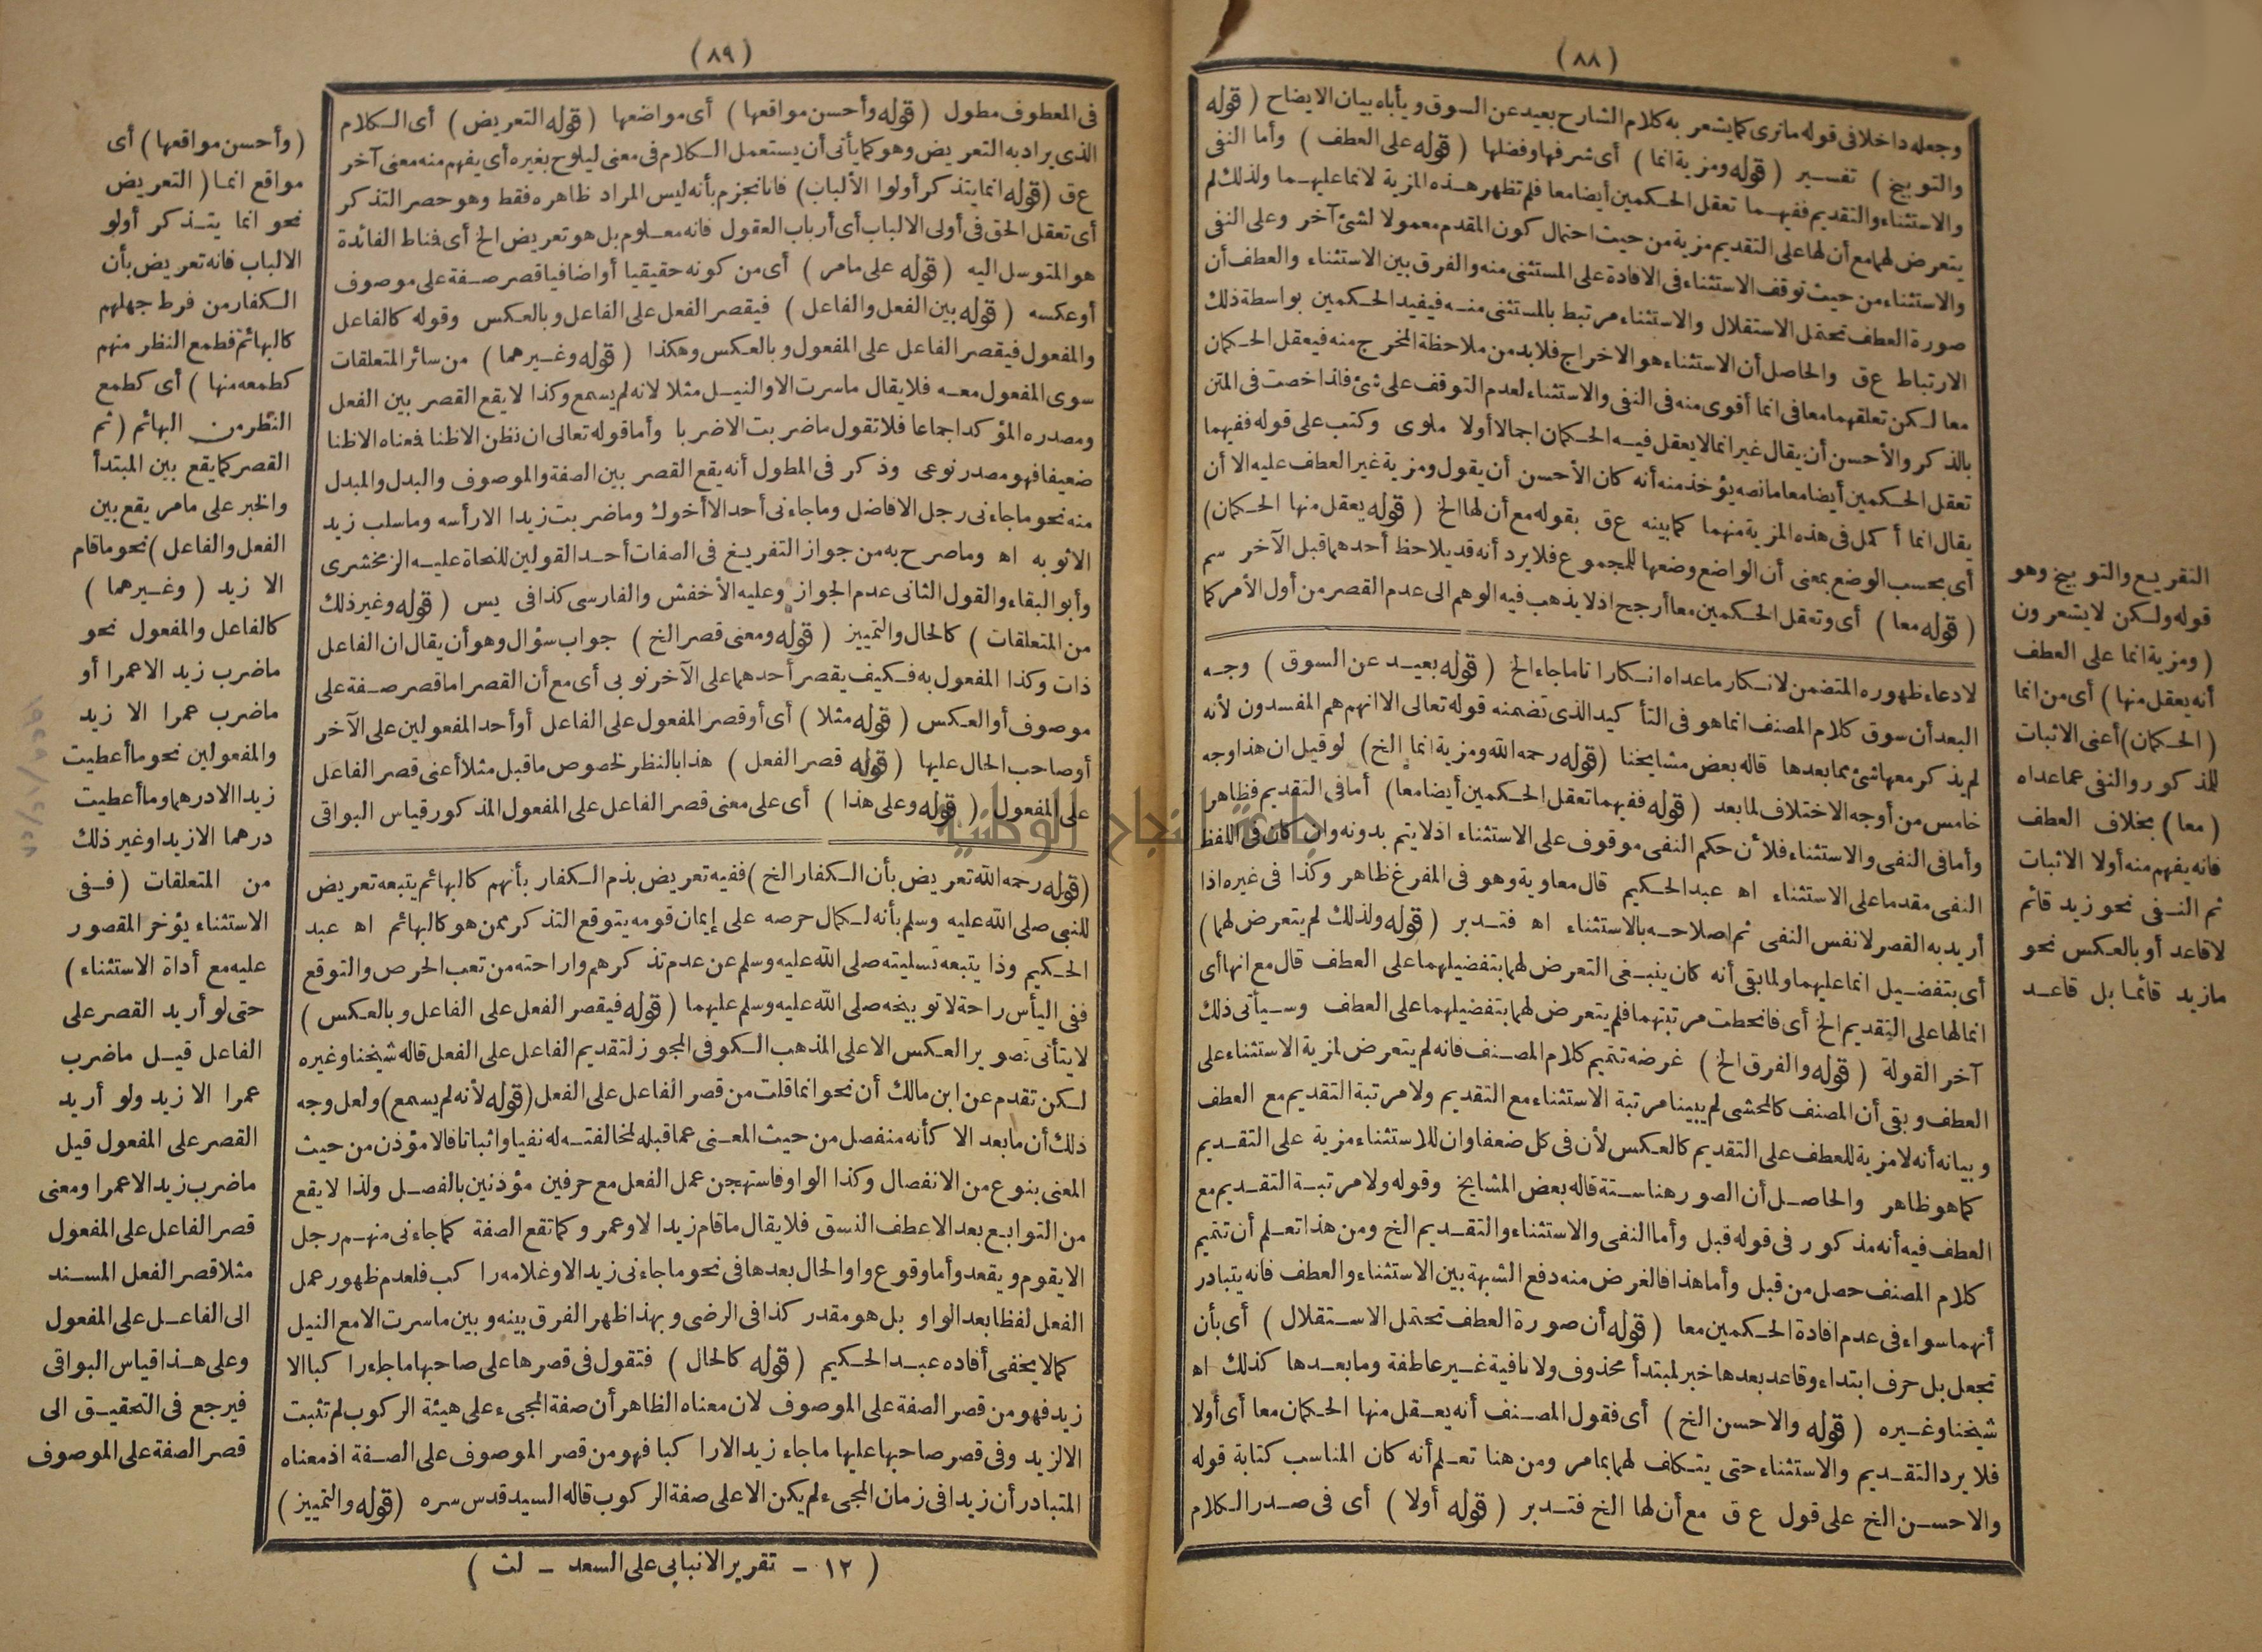 (٨٨)
وجعله داخلا في قوله ماترى كما يشعر به كلام الشارح بعيد عن السوق ويأباه بيان الايضاح (قوله
والتوبيخ) تفسير (قوله ومزية انما) أى شرفها وفضلها (قوله على العطف) وأما النفى
والاستثناء والتقديم ففيهما تعقل الحكمين أيضا معا فلم تظهر هذه المزية لانما عليهما ولذلك لم
يتعرض لهما مع أن لها على التقديم مزية من حيث احتمال كون المقدم معمولا لشئ آخر وعلى النفى
والاستثناء من حيث توقف الاستثناء فى الافادة على المستثنى منه والفرق بين الاستثناء والعطف أن
صورة العطف تحتمل الاستقلال والاستثناء مرتبط بالمستثنى منه فيفيد الحكمين بواسطة ذلك
الارتباط ع ق والحاصل أن الاستثناء هو الاخراج فلا بد من ملاحظة المخرج منه فيعقل الحكمان
معا لكن تعلقهما معا فى انما أقوى منه فى النفى والاستثناء لعدم التوقف على شئ فلذا خصت فى المتن
بالذكر والأحسن أن يقال غير انما لا يعقل فيه الحكمان اجمالا أولا ملوى وكتب على قوله ففيهما
تعقل الحكمين أيضا معا مانصه يؤخذ منه أنه كان الأحسن أن يقول ومزية غير العطف عليه الا أن
يقال انما أكمل فى هذه المزية منهما كما بينه ع ق بقوله مع أن لها الخ (قوله يعقل منها الحكمان)
أى بحسب الوضع بمعنى أن الواضع وضعها للمجموع فلا يرد أنه قد يلاحظ أحدهما قبل الآخر سم
(قوله معا) أى وتعقل الحكمين معا أرجح اذ لا يذهب فيه الوهم الى عدم القصر من أول الأمر كما
لادعاء ظهوره المتضمن لانكار ماعداه انكارا تاما جاء الخ (قوله بعيد عن السوق) وجه
البعد أن سوق كلام المصنف انما هو فى التأكيد الذى تضمنه قوله تعالى الا انهم هم المفسدون لأنه
لم يذكر معها شئ مما بعدها قاله بعض مشايخنا (قوله رحمه الله ومزية انما الخ) لو قيل ان هذا وجه
خامس من أوجه الاختلاف لما بعد (قوله ففيهما تعقل الحكمين أيضا معا) أما فى التقديم فظاهر
وأما فى النفى والاستثناء فلأن حكم النفى موقوف على الاستثناء اذ لا يتم بدونه وان كان فى اللفظ
النفى مقدما على الاستثناء اه عبد الحكيم قال معاوية وهو فى المفرغ ظاهر وكذا فى غيره اذا
أريد به القصر لا نفس النفى ثم اصلاحه بالاستثناء اه فتدبر (قوله ولذلك لم يتعرض لهما)
أى بتفضيل انما عليهما ولما بقى أنه كان ينبغى التعرض لهما بتفضيلهما على العطف قال مع انها أى
انما لها على التقديم الخ أى فانحطت مرتبتهما فلم يتعرض لهما بتفضيلهما على العطف وسيأتى ذلك
آخر القولة (قوله والفرق الخ) غرضه تتميم كلام المصنف فانه لم يتعرض لمزية الاستثناء على
العطف وبقى أن المصنف كالمحشى لم يبينا مرتبة الاستثناء مع التقديم ولا مرتبة التقديم مع العطف
وبيانه أنه لا مزية للعطف على التقديم كالعكس لأن فى كل ضعفا وان للاستثناء مزية على التقديم
كما هو ظاهر والحاصل أن الصور هنا ستة قاله بعض المشايخ وقوله ولا مرتبة التقديم مع
العطف فيه أنه مذكور فى قوله قبل وأما النفى والاستثناء والتقديم الخ ومن هذا تعلم أن تتميم
كلام المصنف حصل من قبل وأما هذا فالغرض منه دفع الشبهة بين الاستثناء والعطف فانه يتبادر
أنهما سواء فى عدم افادة الحكمين معا (قوله أن صورة العطف تحتمل الاستقلال) أى بأن
تجعل بل حرف ابتداء وقاعد بعدها خبر لمبتدأ محذوف ولا نافية غير عاطفة وما بعدها كذلك اه
شيخنا وغيره (قوله والاحسن الخ) أى فقول المصنف أنه يعقل منها الحكمان معا أى أولا
فلا يرد التقديم والاستثناء حتى يتكلف لهما بمامر ومن هنا تعلم أنه كان المناسب كتابة قوله
والاحسن الخ على قول ع ق مع أن لها الخ فتدبر (قوله أولا) أى فى صدر الكلام
التقريع والتوبيخ وهو
قوله ولكن لا يشعرون
(ومزية انما على العطف
أنه يعقل منها) أى من انما
(الحكمان) أعنى الاثبات
للمذكور والنفى عما عداه
(معا) بخلاف العطف
فانه يفهم منه أولا الاثبات
ثم النفى نحو زيد قائم
لا قاعد أو بالعكس نحو
مازيد قائما بل قاعد
(٨٩)
فى المعطوف مطول (قوله وأحسن مواقعها) أى مواضعها (قوله التعريض) أى الكلام
الذى يراد به التعريض وهو كما يأتى أن يستعمل الكلام فى معنى ليلوح بغيره أى يفهم منه معنى آخر
ع ق (قوله انما يتذكر أولوا الألباب) فانا نجزم بأنه ليس المراد ظاهره فقط وهو حصر التذكر
أى تعقل الحق فى أولى الالباب أى أرباب العقول فانه معلوم بل هو تعريض الخ أى فناط الفائدة
هو المتوسل اليه (قوله على مامر) أى من كونه حقيقيا أو اضافيا قصر صفة على موصوف
أوعكسه (قوله بين الفعل والفاعل) فيقصر الفعل على الفاعل وبالعكس وقوله كالفاعل
والمفعول فيقصر الفاعل على المفعول وبالعكس وهكذا (قوله وغيرهما) من سائر المتعلقات
سوى المفعول معه فلا يقال ماسرت الا والنيل مثلا لانه لم يسمع وكذا لا يقع القصر بين الفعل
ومصدره المؤكد اجماعا فلا تقول ماضربت الا ضربا وأما قوله تعالى ان نظن الا ظنا فمعناه الا ظنا
ضعيفا فهو مصدر نوعى وذكر فى المطول أنه يقع القصر بين الصفة والموصوف والبدل والمبدل
منه نحو ماجاءنى رجل الا فاضل وما جاءنى أحد الا أخوك وماضربت زيدا الا رأسه وماسلب زيد
الا ثوبه اه وماصرح به من جواز التفريغ فى الصفات أحد القولين للنحاة عليه الزمخشرى
وأبو البقاء والقول الثانى عدم الجواز وعليه الأخفش والفارسى كذا فى يس (قوله وغير ذلك
من المتعلقات) كالحال والتمييز (قوله ومعنى قصر الخ) جواب سؤال وهو أن يقال ان الفاعل
ذات وكذا المفعول به فكيف يقصر أحدهما على الآخر نوبى أى مع أن القصر اما قصر صفة على
موصوف أو العكس (قوله مثلا) أى أو قصر المفعول على الفاعل أو أحد المفعولين على الآخر
أوصاحب الحال عليها (قوله قصر الفعل) هذا بالنظر لخصوص ماقبل مثلا أعنى قصر الفاعل
على المفعول (قوله وعلى هذا) أى على معنى قصر الفاعل على المفعول المذكور قياس البواقى
(قوله رحمه الله تعريض بأن الكفار الخ) ففيه تعريض بذم الكفار بأنهم كالبهائم يتبعه تعريض
للنبى صلى الله عليه وسلم بأنه لكمال حرصه على إيمان قومه يتوقع التذكر ممن هو كالبهائم اه عبد
الحكيم وذا يتبعه تسليته صلى الله عليه وسلم عن عدم تذكرهم واراحته من تعب الحرص والتوقع
ففى اليأس راحة لا توبيخه صلى الله عليه وسلم عليهما (قوله فيقصر الفعل على الفاعل وبالعكس)
لا يتأتى تصوير العكس الا على المذهب الكوفى المجوز لتقديم الفاعل على الفعل قاله شيخنا وغيره
لكن تقدم عن ابن مالك أن نحو انما قلت من قصر الفاعل على الفعل (قوله لأنه لم يسمع) ولعل وجه
ذلك أن ما بعد الا كأنه منفصل من حيث المعنى عما قبله لمخالفته له نفيا واثباتا فالا مؤذن من حيث
المعنى بنوع من الانفصال وكذا الواو فاستهجن عمل الفعل مع حرفين مؤذنين بالفصل ولذا لا يقع
من التوابع بعد الا عطف النسق فلا يقال ماقام زيد الا وعمرو كما تقع الصفة كما جاءنى منهم رجل
الا يقوم ويقعد وأما وقوع واو الحال بعدها فى نحو ماجاءنى زيد الا وغلامه راكب فلعدم ظهور عمل
الفعل لفظا بعد الواو بل هو مقدر كذا فى الرضى وبهذا ظهر الفرق بينه وبين ماسرت الا مع النيل
كما لا يخفى أفاده عبد الحكيم (قوله كالحال) فتقول فى قصرها على صاحبها ماجاء راكبا الا
زيد فهو من قصر الصفة على الموصوف لان معناه الظاهر أن صفة المجىء على هيئة الركوب لم تثبت
الا لزيد وفى قصر صاحبها عليها ماجاء زيد الا راكبا فهو من قصر الموصوف على الصفة اذ معناه
المتبادر أن زيدا فى زمان المجىء لم يكن الا على صفة الركوب قاله السيد قدس سره (قوله والتمييز)
(وأحسن مواقعها) أى
مواقع انما (التعريض
نحو انما يتذكر أولو
الالباب فانه تعريض بأن
الكفار من فرط جهلهم
كالبهائم فطمع النظر منهم
كطمعه منها) أى كطمع
النظر من البهائم (ثم
القصر كما يقع بين المبتدأ
والخبر على مامر يقع بين
الفعل والفاعل) نحو ماقام
الا زيد (وغيرهما)
كالفاعل والمفعول نحو
ماضرب زيد الا عمرا أو
ماضرب عمرا الا زيد
والمفعولين نحو ماأعطيت
زيدا الا درهما وماأعطيت
درهما الا زيدا وغير ذلك
من المتعلقات (ففى
الاستثناء يؤخر المقصور
عليه مع أداة الاستثناء)
حتى لو أريد القصر على
الفاعل قيل ماضرب
عمرا الا زيد ولو أريد
القصر على المفعول قيل
ماضرب زيد الا عمرا ومعنى
قصر الفاعل على المفعول
مثلا قصر الفعل المسند
الى الفاعل على المفعول
وعلى هذا قياس البواقى
فيرجع فى التحقيق الى
قصر الصفة على الموصوف
(١٢ - تقرير الانبابى على السعد - لث)
جامعة النجاح الوطنية